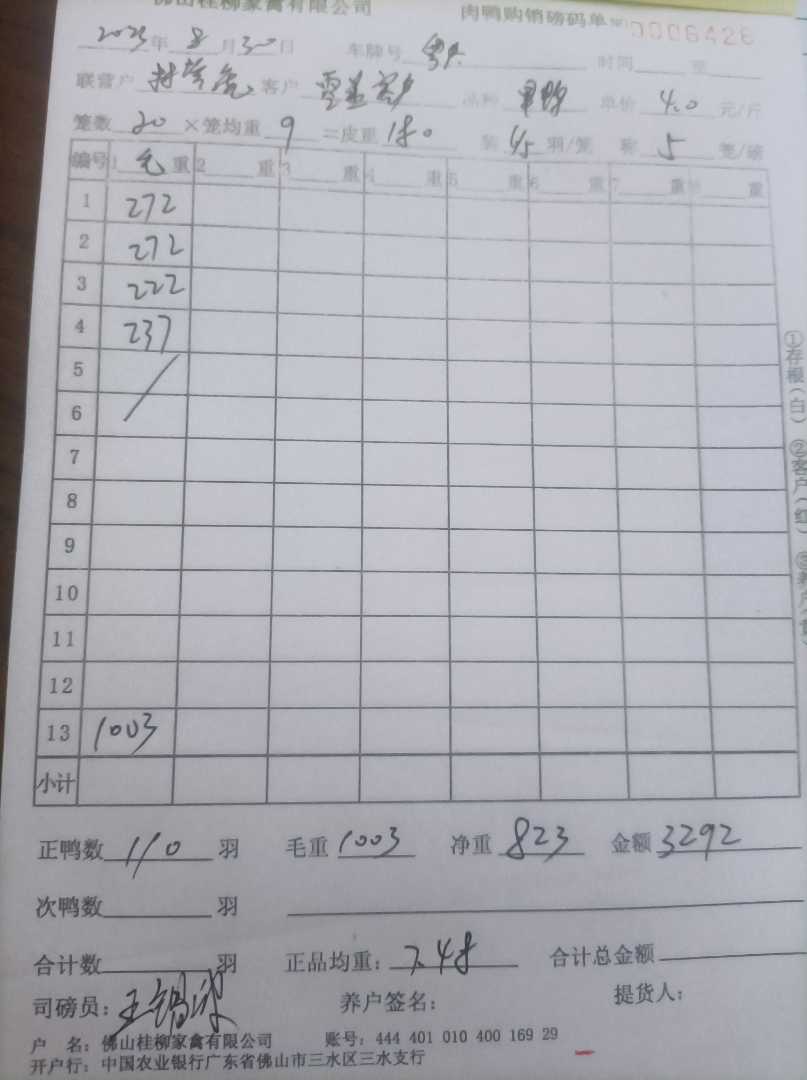 佛山桂柳家禽有限公司 肉鸭购销磅码单 №0006426
2023年 8月30日 车牌号 时间 至
联营户 客户 品种 单价 4.0 元/斤
笼数 20 ×笼均重 9 =皮重 180 装 羽/笼 称 5 笼/磅
编号 1 毛 重 2 重 3 重 4 重 5 重 6 重 7 重 8 重
1 272
2 272
3 222
4 237
5
6
7
8
9
10
11
12
13 1003
小计
正鸭数 110 羽 毛重 1003 净重 823 金额 3292
次鸭数 羽
合计数 羽 正品均重: 7.48 合计总金额
司磅员: 王锡波 养户签名: 提货人:
户 名: 佛山桂柳家禽有限公司 账号: 444 401 010 400 169 29
开户行: 中国农业银行广东省佛山市三水区三水支行
①存根(白) ②客户(红)